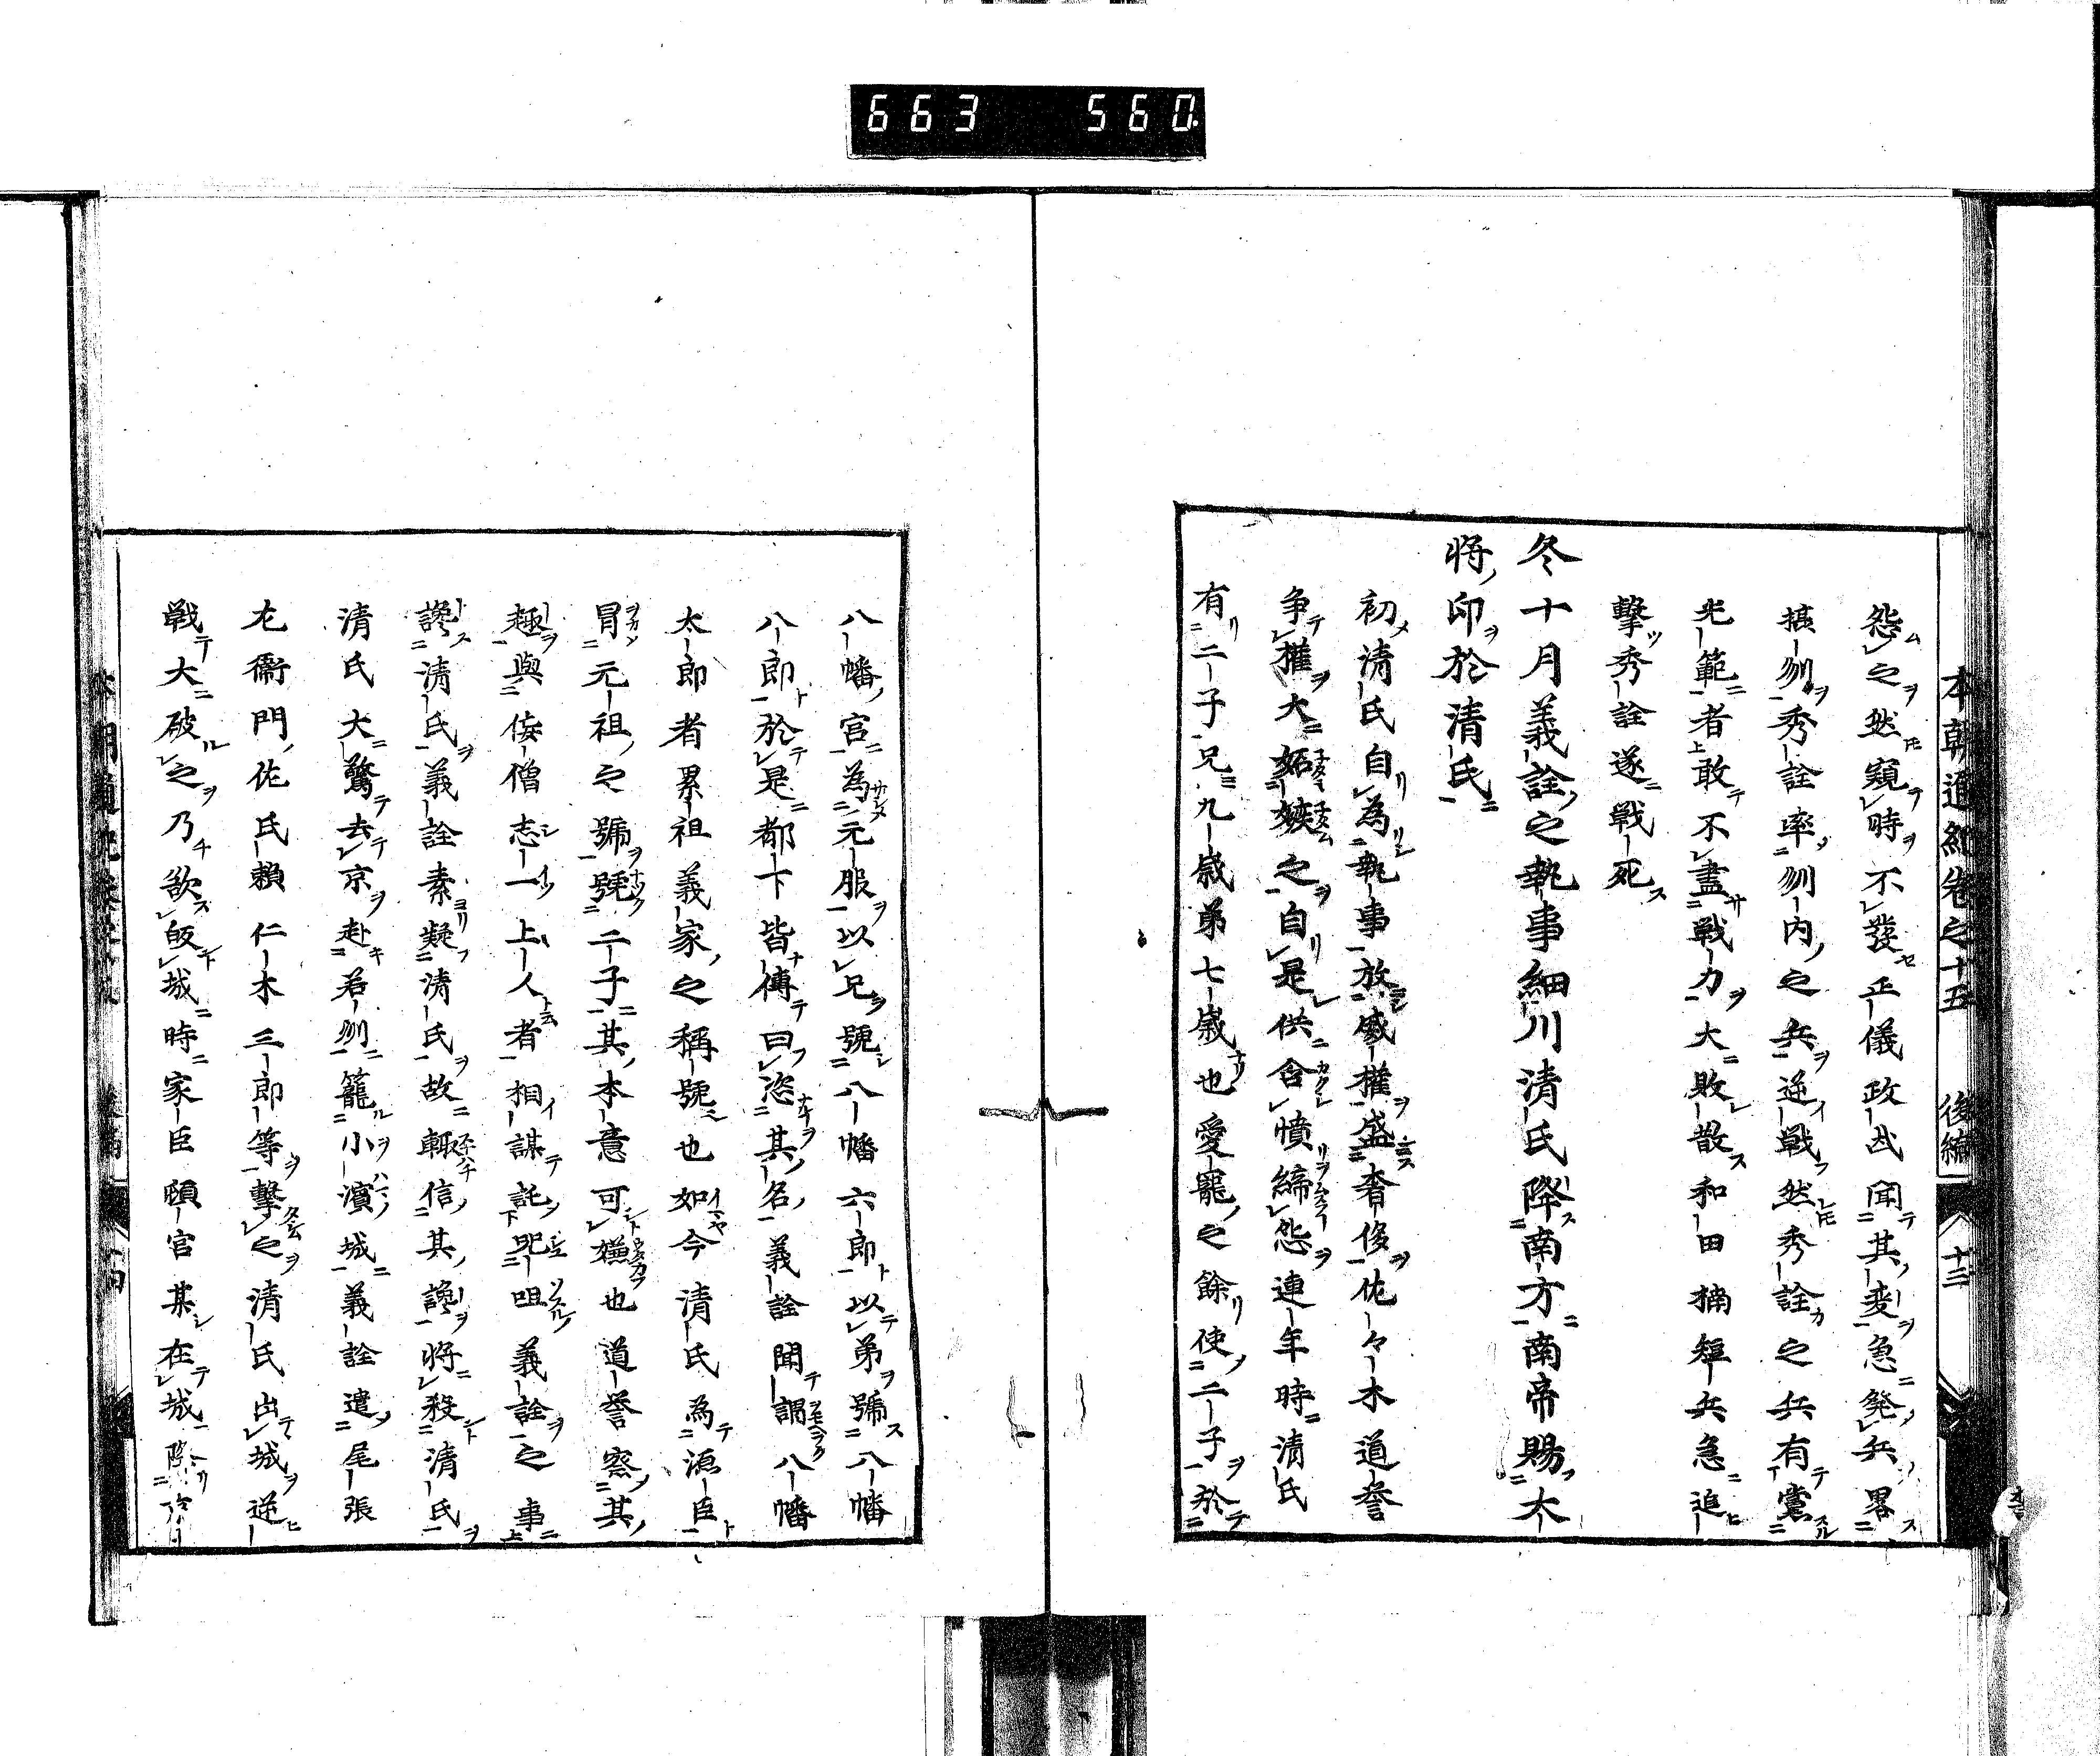 663 560
本朝通紀卷之十五 後編 十三
怨之然窺時不發正儀政氏聞其変急発兵畧
摂刕秀詮率刕内之兵逆戦然秀詮之兵有黨
光範者敢不盡戦力大敗散和田楠短兵急追
擊秀詮遂戦死
冬十月義詮之執事細川清氏降南方南帝賜大
将印於清氏
初清氏自為執事放威權盛奢侈佐々木道誉
争權大妬嫉之自是供含憤締怨連年時清氏
有二子兄九歳弟七歳也愛寵之餘使二子於
八幡宮為元服以兄號八幡六郎以弟號八幡
八郎於是都下皆傳曰恣其名義詮聞謂八幡
太郎者累祖義家之稱號也如今清氏為源臣
冒元祖之號號二子其本意可嫌也道誉察其
趣與侫僧志一上人者相謀託呪咀義詮之事
讒清氏義詮素疑清氏故輙信其讒将殺清氏
清氏大驚去京赴若刕籠小濱城義詮遣尾張
左衞門佐氏頼仁木三郎等擊之清氏出城逆
戦大破之乃欲皈城時家臣頓宮某在城